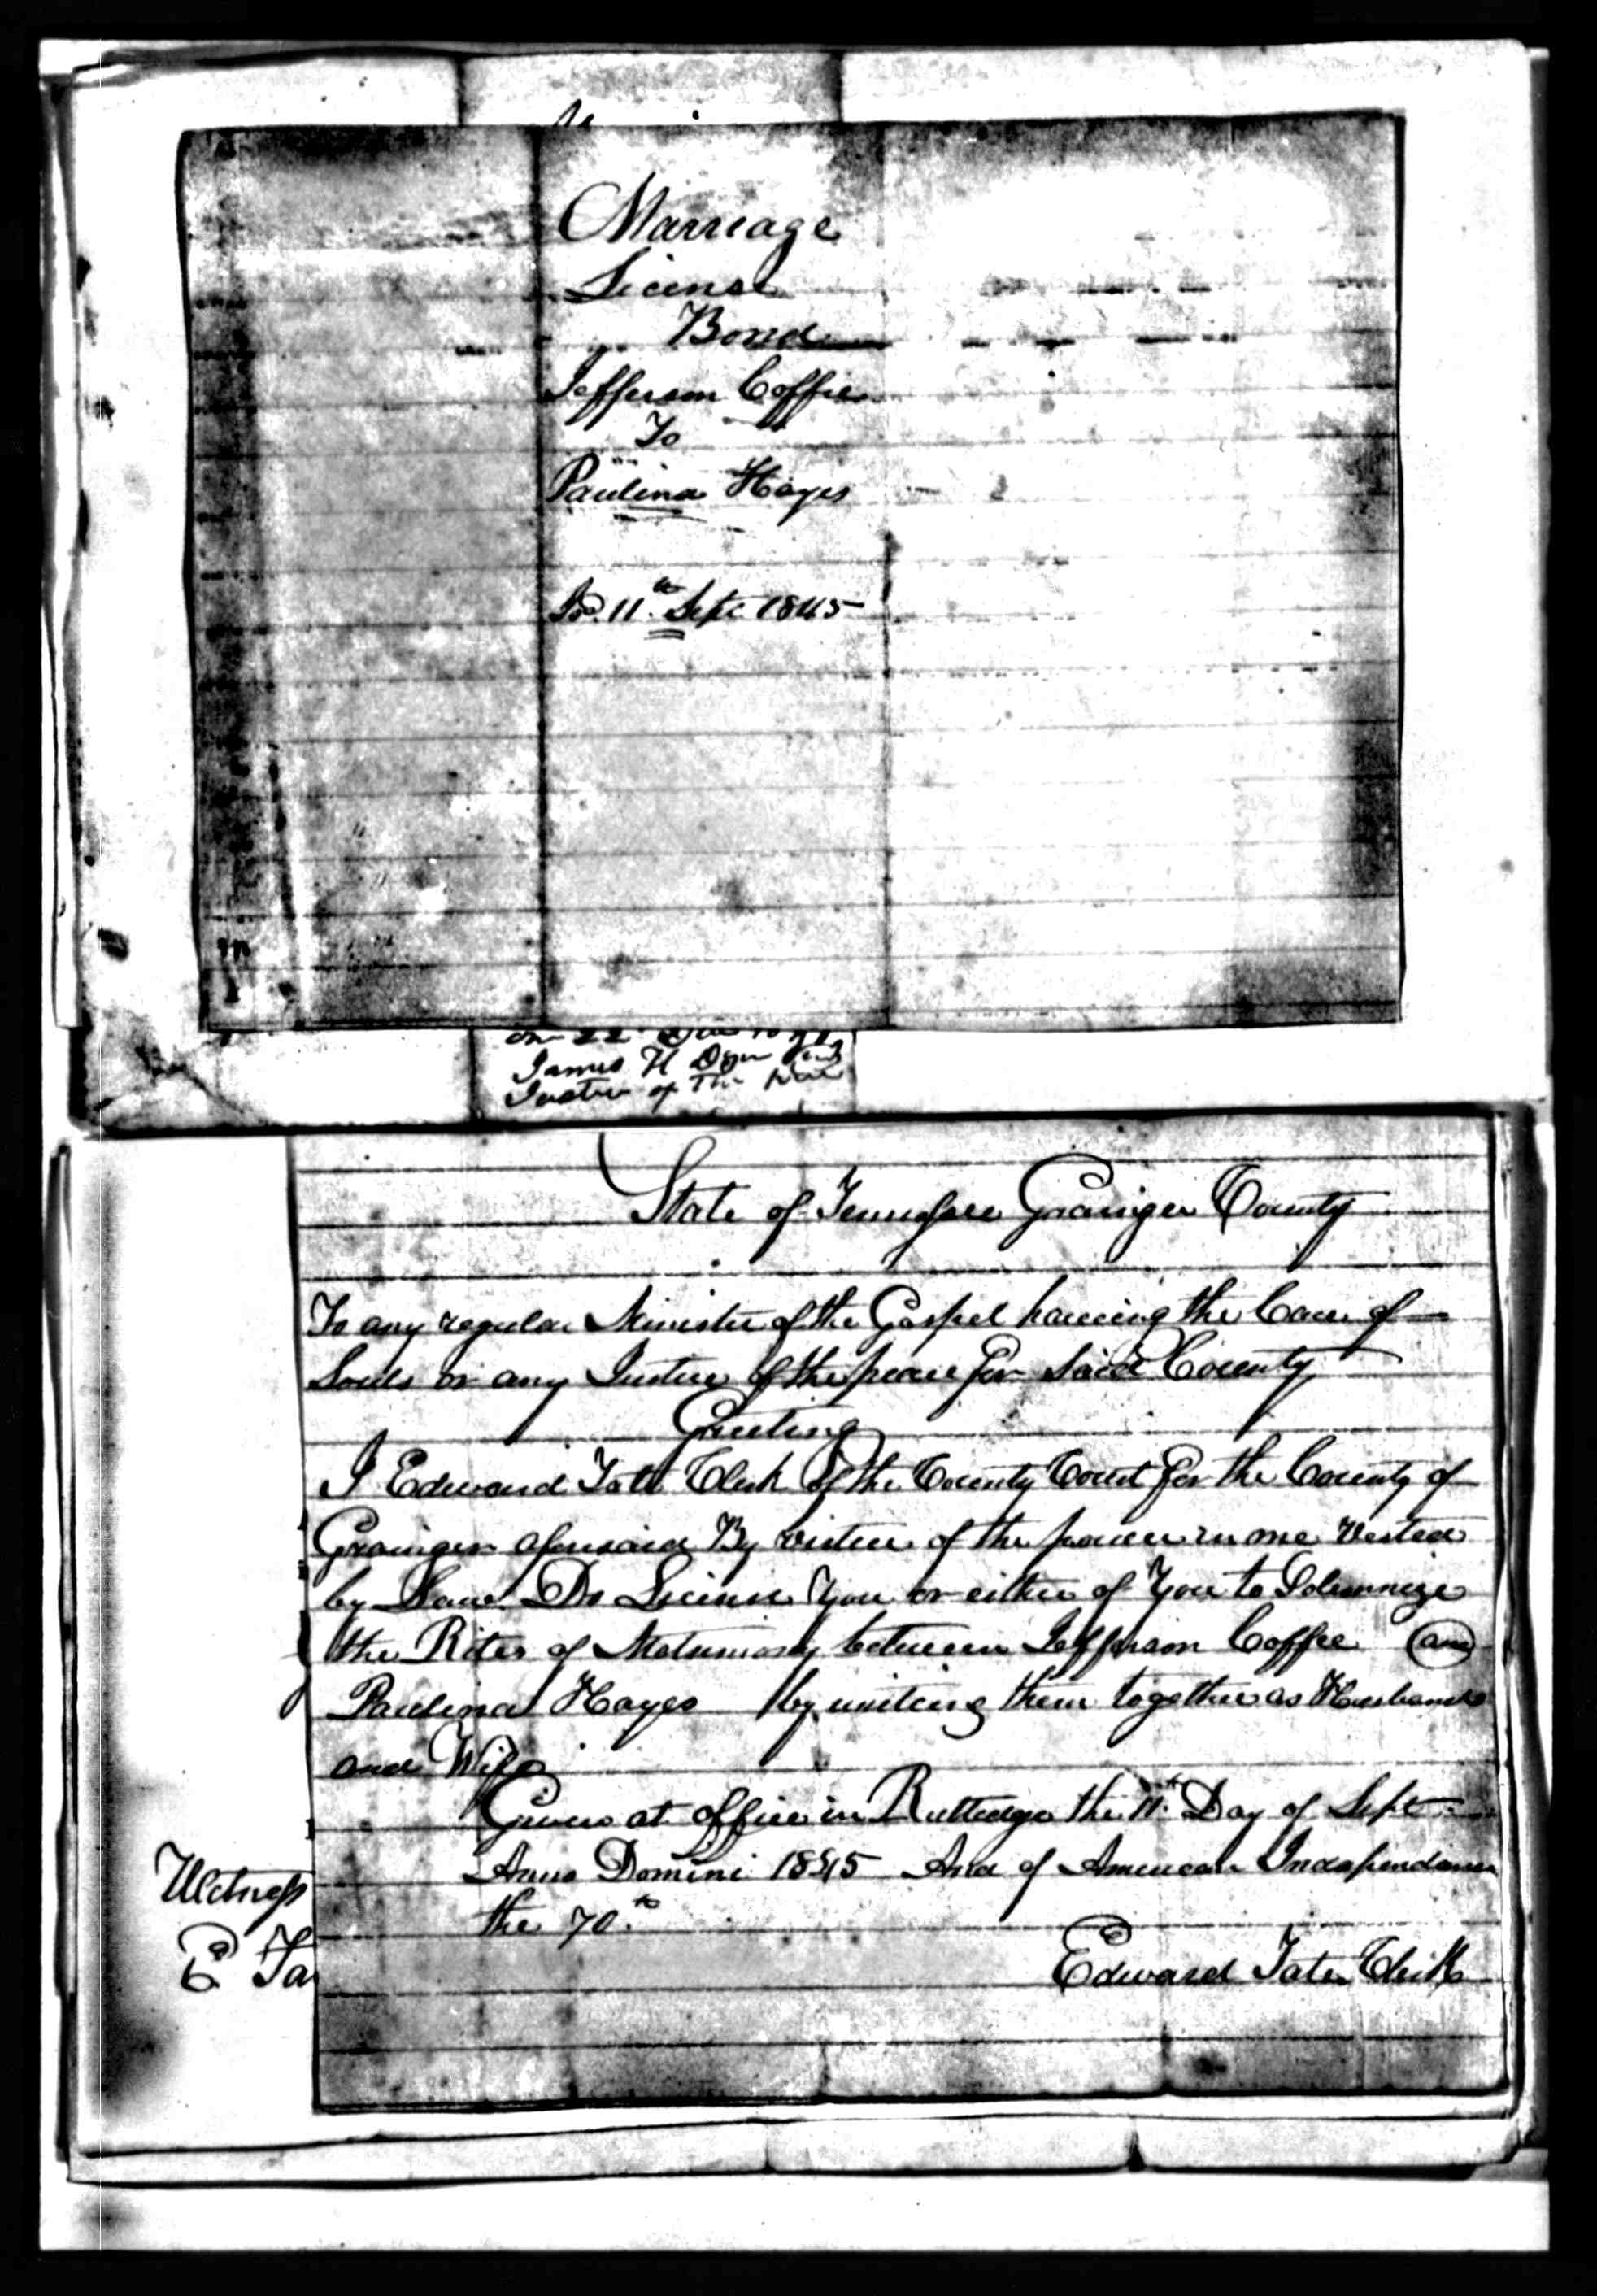 Marriage
License
Bond
Jefferson Coffee
To
Paulina Hayes
Isd. 11th Sept 1845
on 22
James H
Justice of The
State of Tennessee Grainger County
To any regular Minister of the Gospel having the Care of
Souls or any Justice of the peace for Said County
Greeting
I Edward Tate Clerk of the County Court for the County of
Grainger aforesaid By virtue of the power in me Vested
by Law Do License You or either of You to Solemnize
the Rites of Matrimony between Jefferson Coffee and
Paulina Hayes by uniting them together as Husband
and Wife
Given at office in Rutledge the 11th Day of Sept
Anno Domini 1845 And of American Independence
the 70th
Witness
E Ta
Edward Tate Clerk